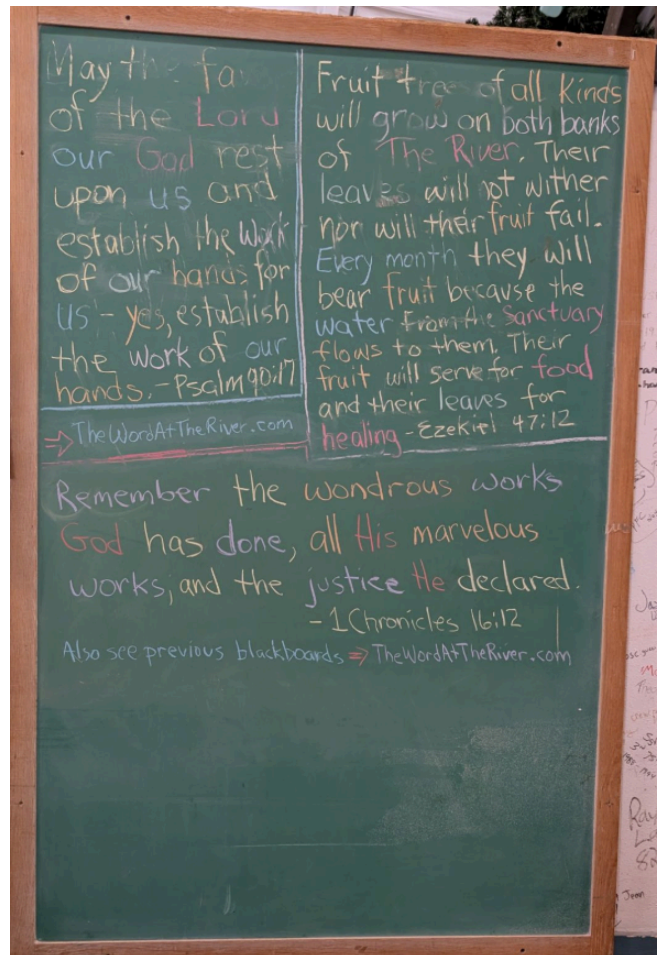 May the fa
of the Lord
our God rest
upon us and
establish the work
of our hands for
us - yes, establish
the work of our
hands. - Psalm 90:17
⇒ TheWordAtTheRiver.com
Fruit trees of all kinds
will grow on both banks
of The River. Their
leaves will not wither
nor will their fruit fail.
Every month they will
bear fruit because the
water from the Sanctuary
flows to them. Their
fruit will serve for food
and their leaves for
healing - Ezekiel 47:12
Remember the wondrous works
God has done, all His marvelous
works, and the justice He declared.
- 1 Chronicles 16:12
Also see previous blackboards ⇒ TheWordAtTheRiver.com